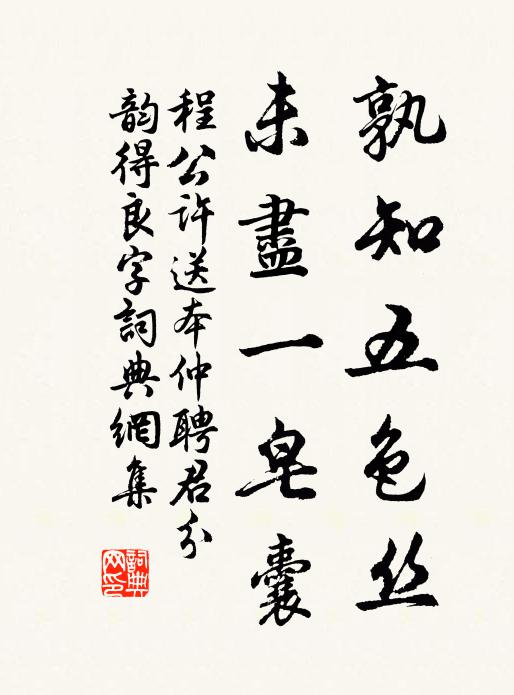 孰知五色丝
未盡一皂囊
程公许送本仲聘君分
韵得良字詞典網集
詞典网印